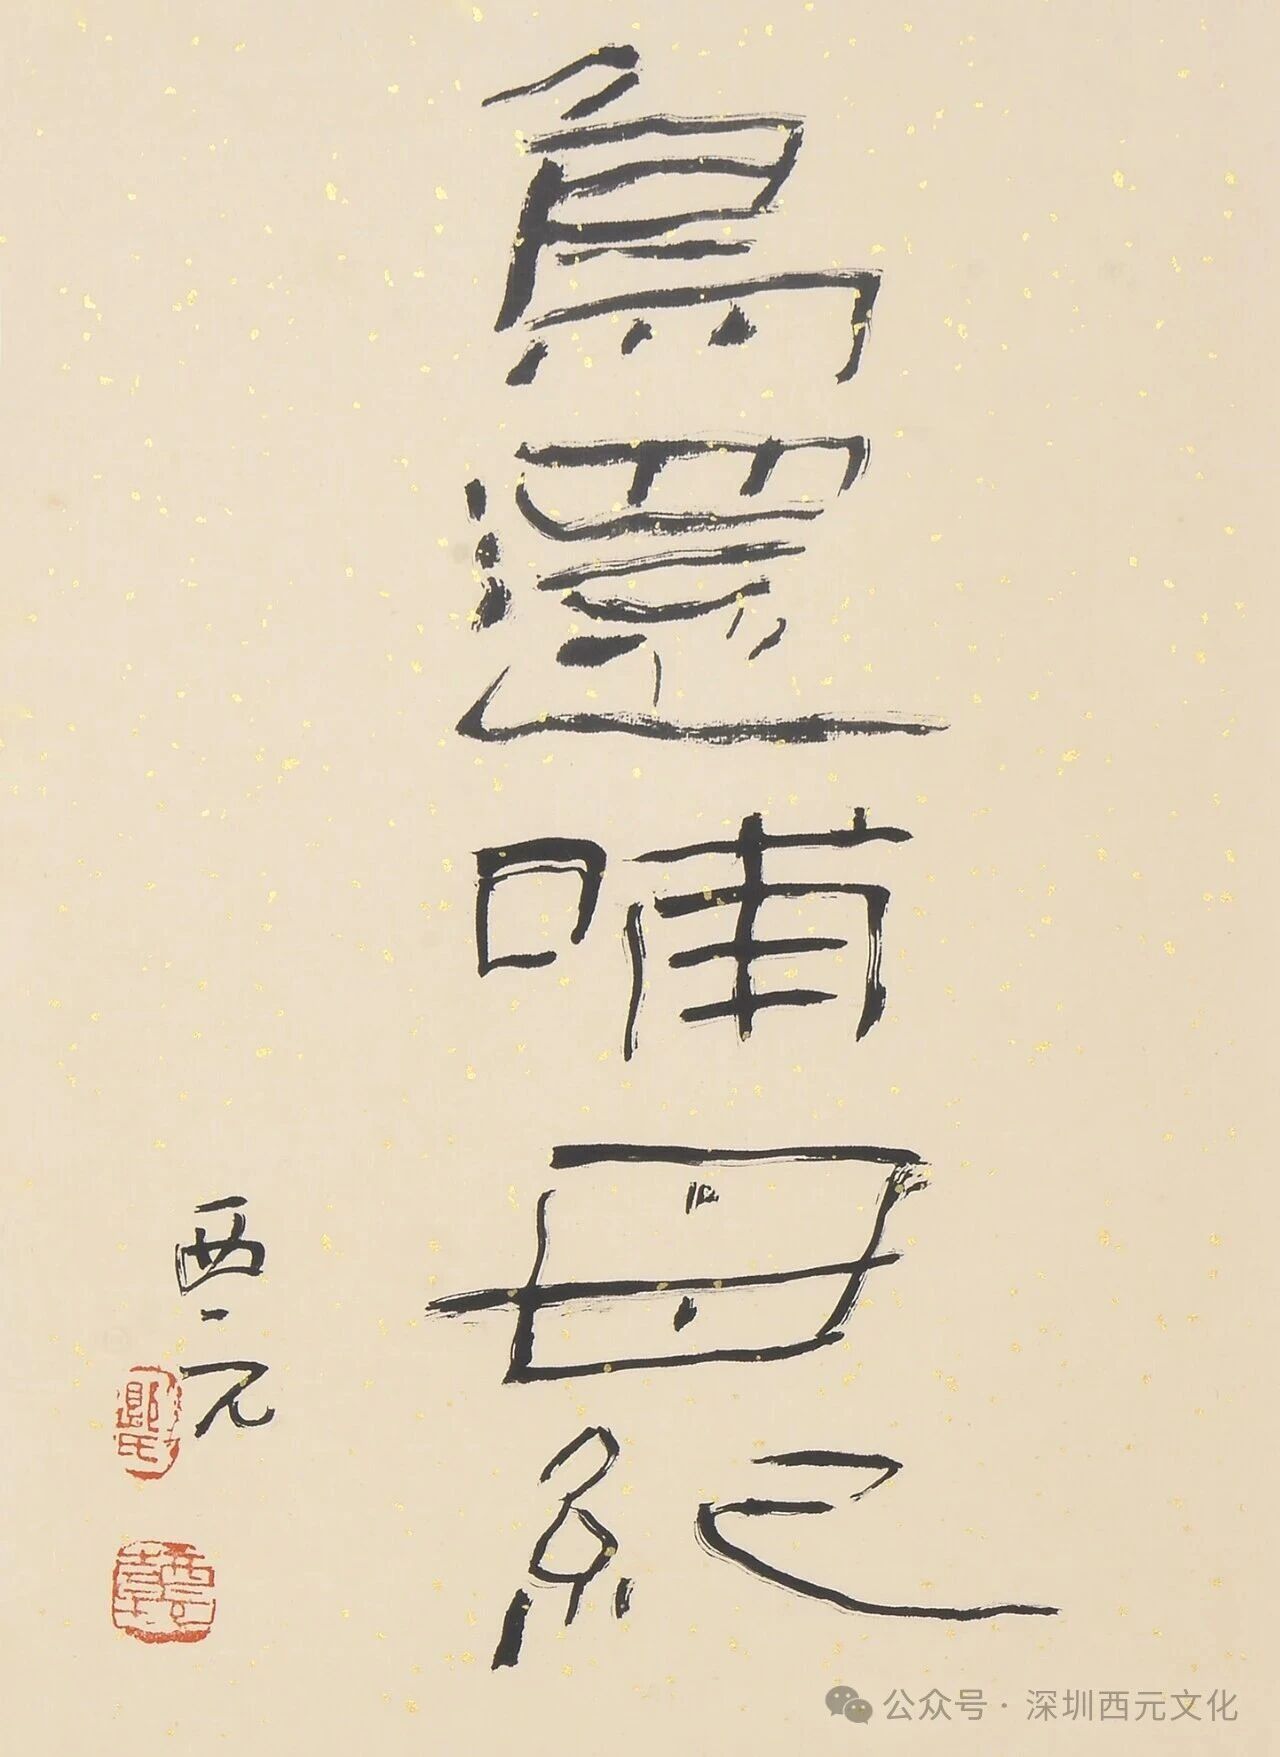 鳥還哺母紀
西元
公众号 · 深圳西元文化